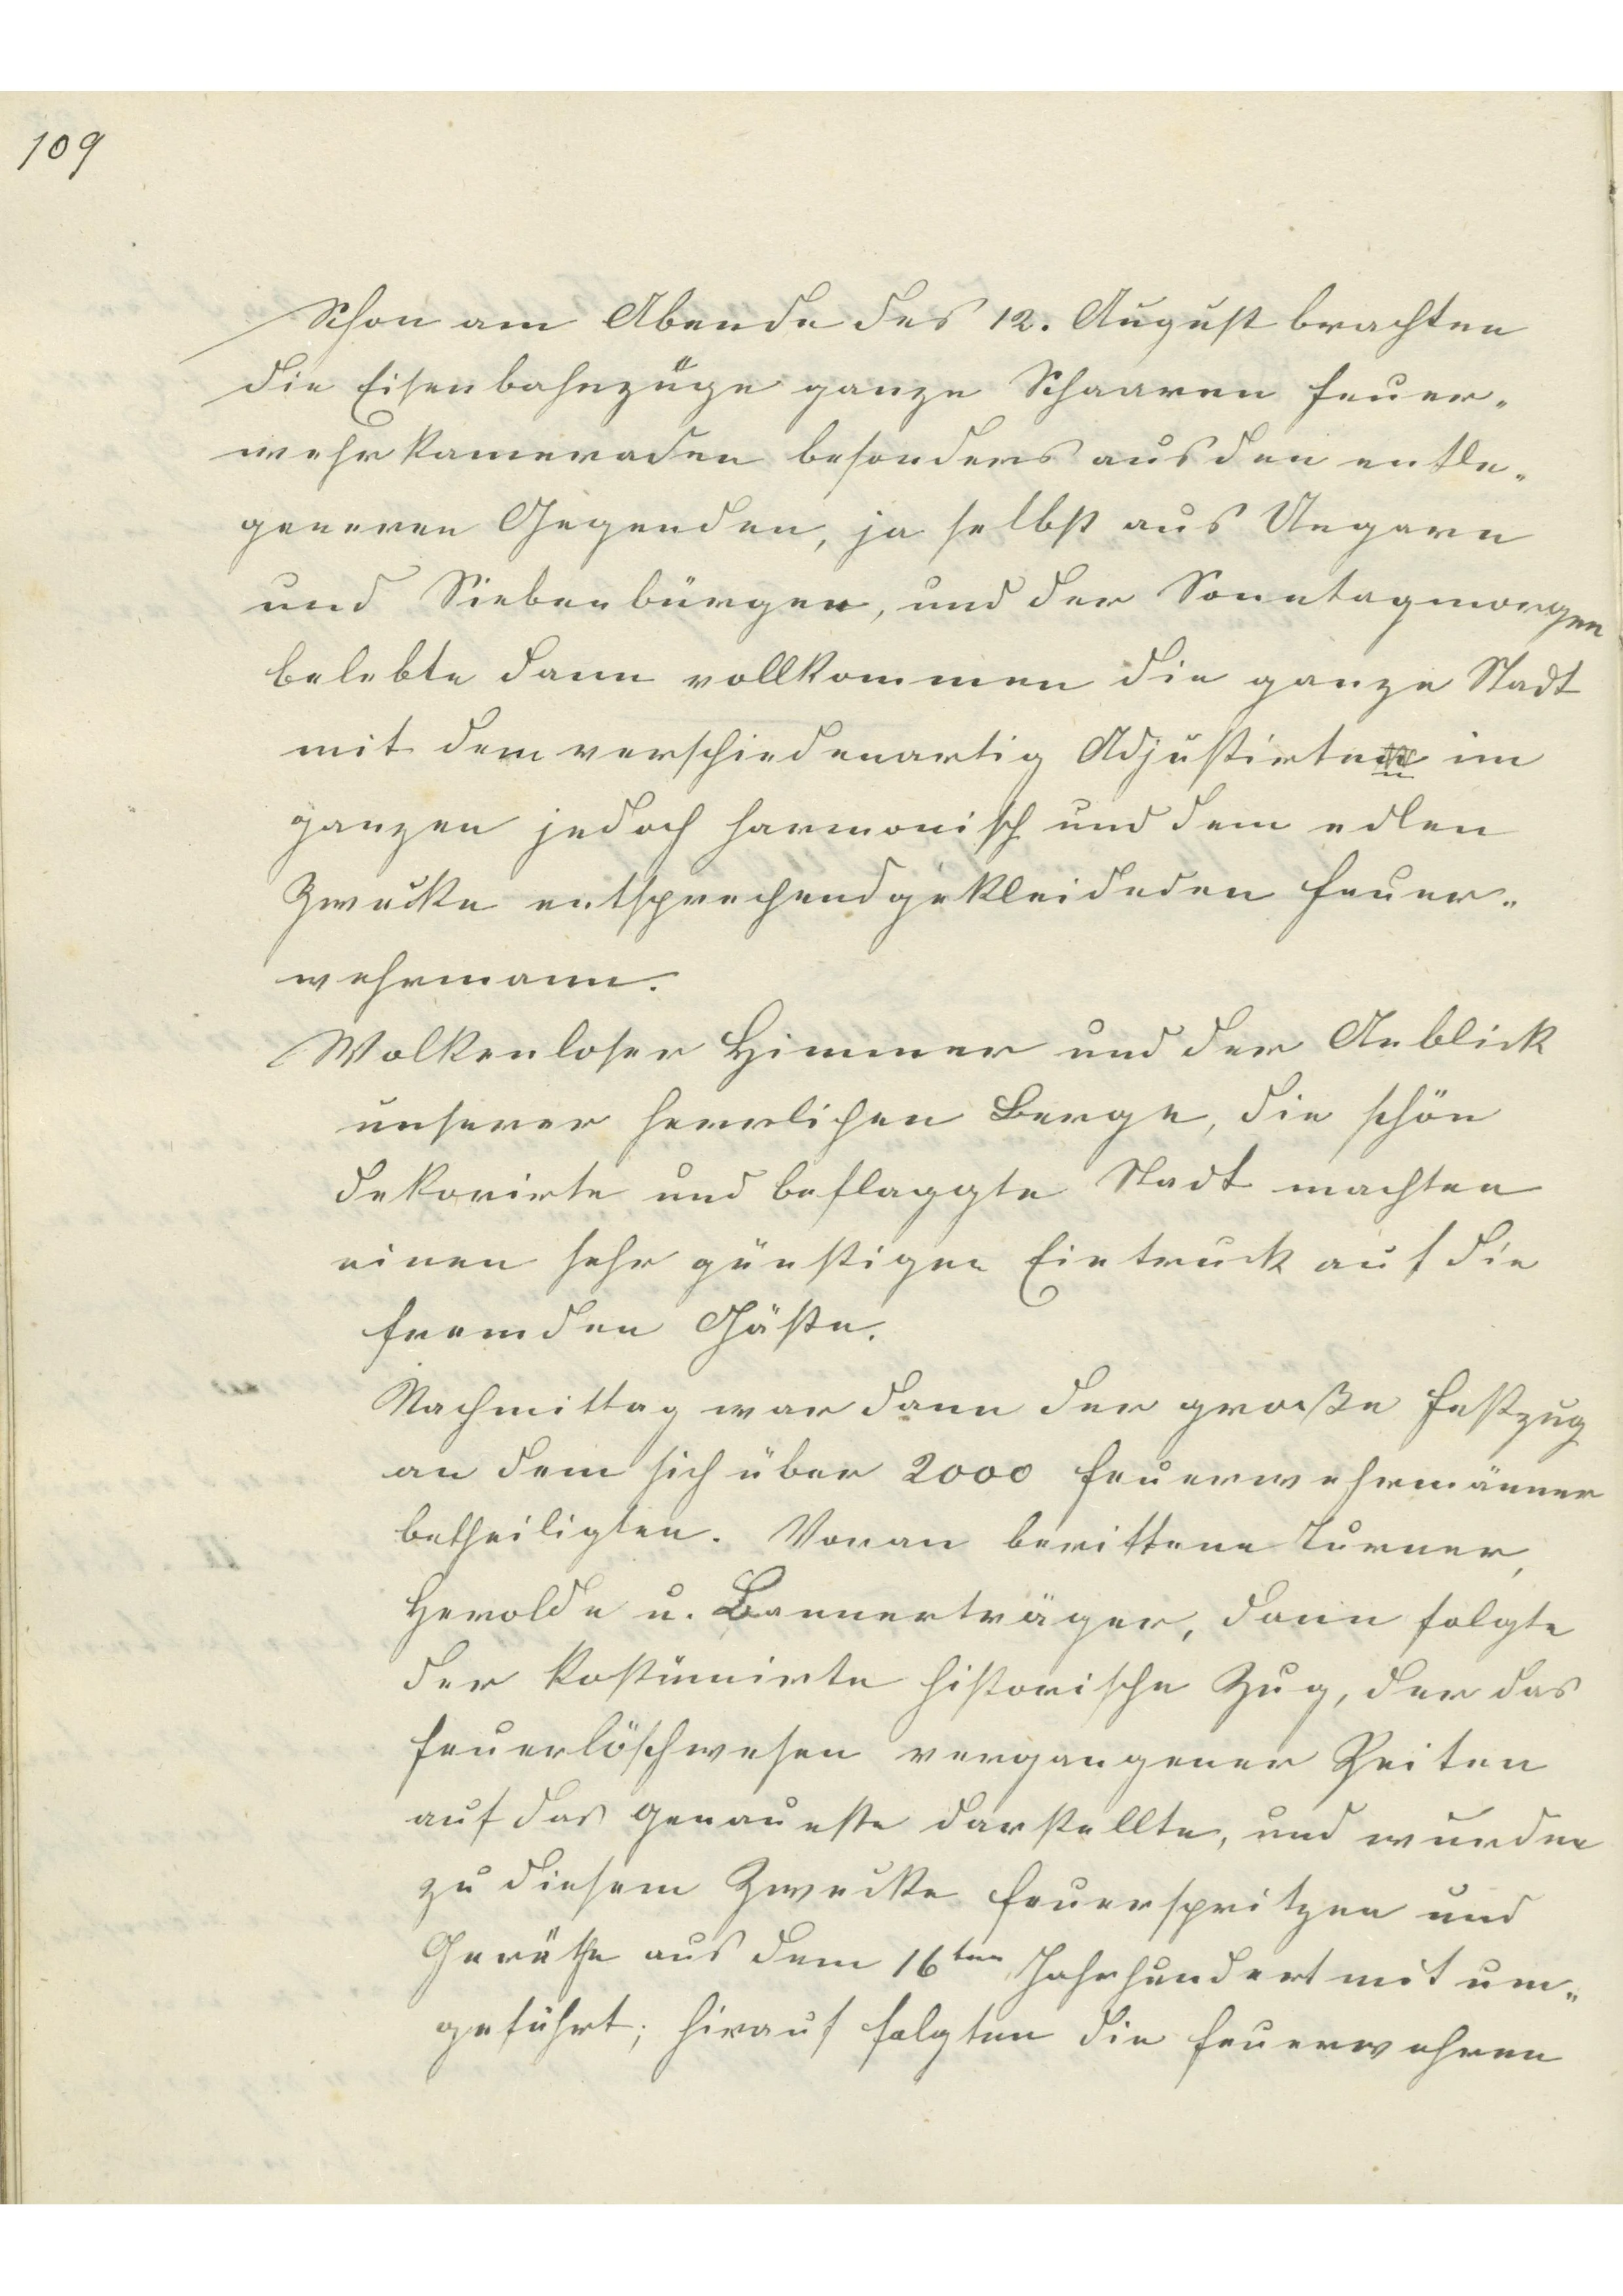 109
Schon am Abende des 12. August brachten
die Eisenbahnzüge ganze Schaaren Feuer-
wehrkameraden besonders aus den entle-
generen Gegenden, ja selbst aus Ungarn
und Siebenbürgen, und der Sonntagmorgen
belebte dann vollkommen die ganze Stadt
mit dem verschiedenartig Adjustirten im
ganzen jedoch harmonisch und dem edlen
Zwecke entsprechend gekleideden Feuer-
wehrmann.
Wolkenloser Himmer und der Anblick
unserer herrlichen Berge, die schön
dekorirte und beflaggte Stadt machten
einen sehr günstigen Eintruck auf die
fremden Gäste.
Nachmittag war dann der große Festzug
an dem sich über 2000 Feuerwehrmänner
betheiligten. Voran berittene Turner,
Herolde u. Bannerträger, dann folgte
der kostümirte historische Zug, der das
Feuerlöschwesen vergangener Zeiten
auf das genaueste darstellte, und wurden
zu diesem Zwecke Feuerspritzen und
Geräthe aus dem 16ten Jahrhundert mit um-
geführt; hirauf folgten die Feuerwehren